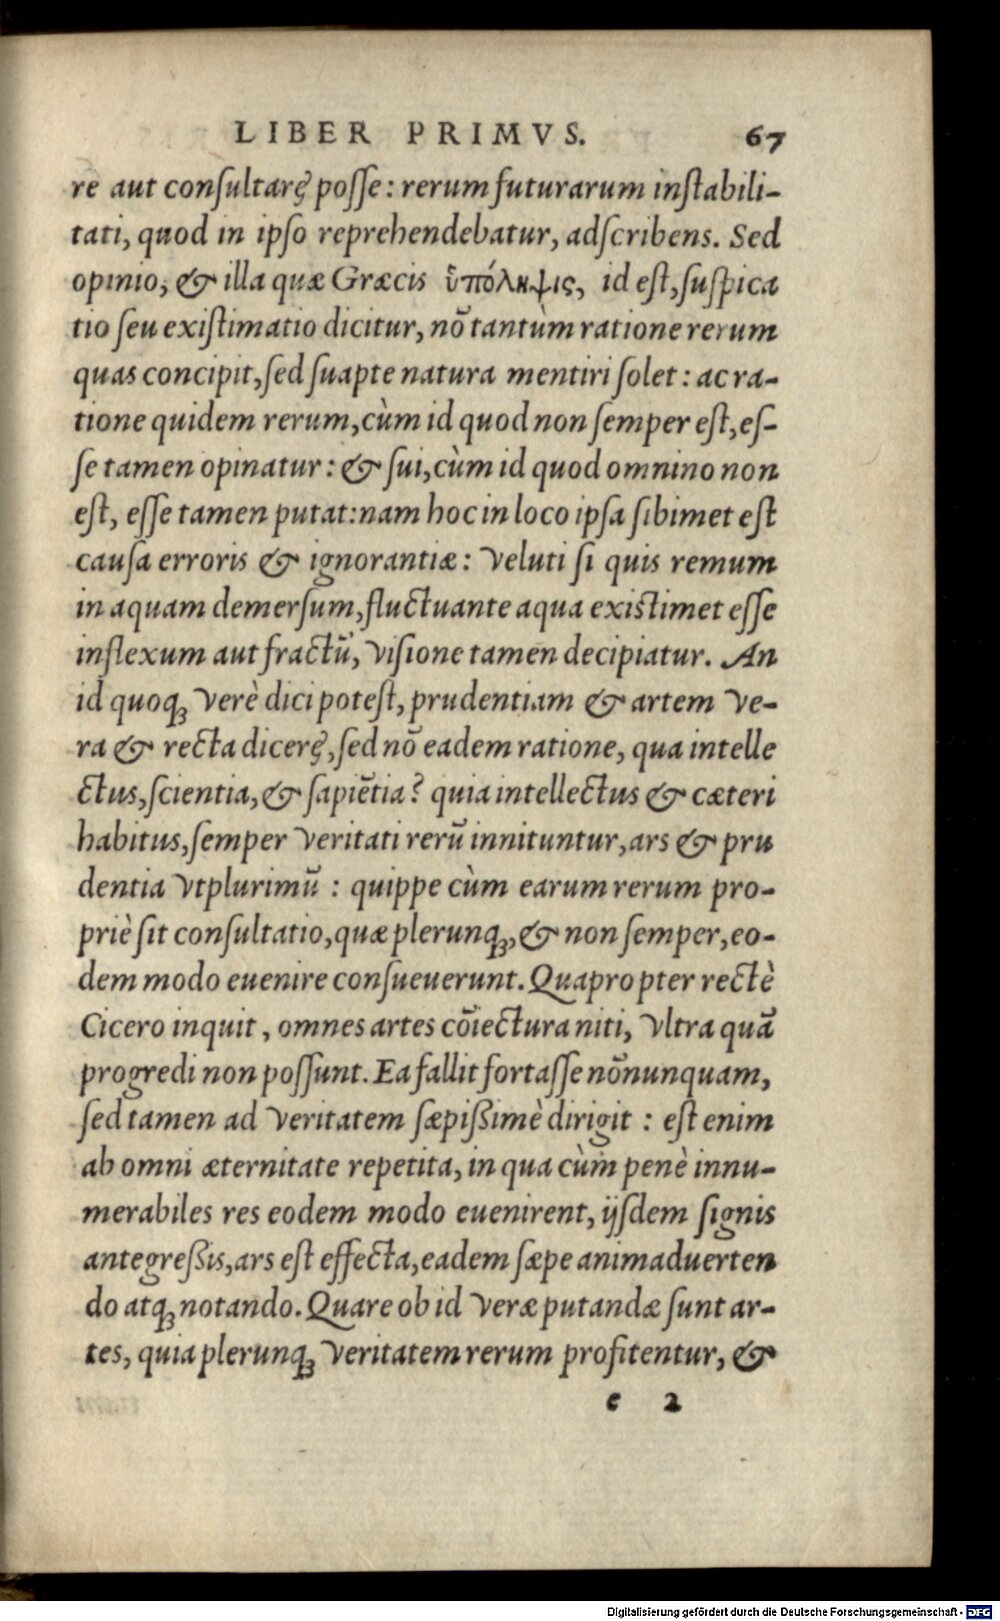 LIBER PRIMVS. 67
re aut conſultarę poſſe: rerum futurarum inſtabili-
tati, quod in ipſo reprehendebatur, adſcribens. Sed
opinio, & illa quæ Græcis ὑπόληψις, id eſt, ſuſpica
tio ſeu exiſtimatio dicitur, nō tantùm ratione rerum
quas concipit, ſed ſuapte natura mentiri ſolet: ac ra-
tione quidem rerum, cùm id quod non ſemper eſt, eſ-
ſe tamen opinatur: & ſui, cùm id quod omnino non
eſt, eſſe tamen putat: nam hoc in loco ipſa ſibimet eſt
cauſa erroris & ignorantiæ: veluti ſi quis remum
in aquam demerſum, fluctuante aqua exiſtimet eſſe
inflexum aut fractū, viſione tamen decipiatur. An
id quoq; verè dici poteſt, prudentiam & artem ve-
ra & recta dicerę, ſed nō eadem ratione, qua intelle
ctus, ſcientia, & ſapiētia? quia intellectus & cæteri
habitus, ſemper veritati rerū innituntur, ars & pru
dentia vtplurimū : quippe cùm earum rerum pro-
priè ſit conſultatio, quæ plerunq;, & non ſemper, eo-
dem modo euenire conſueuerunt. Quapropter rectè
Cicero inquit, omnes artes cōiectura niti, vltra quā
progredi non poſſunt. Ea fallit fortaſſe nōnunquam,
ſed tamen ad veritatem ſæpißimè dirigit : eſt enim
ab omni æternitate repetita, in qua cùm penè innu-
merabiles res eodem modo euenirent, ijſdem ſignis
antegreßis, ars eſt effecta, eadem ſæpe animaduerten
do atq; notando. Quare ob id veræ putandæ ſunt ar-
tes, quia plerunq; veritatem rerum profitentur, &
e 2
Digitalisierung gefördert durch die Deutsche Forschungsgemeinschaft - DFG